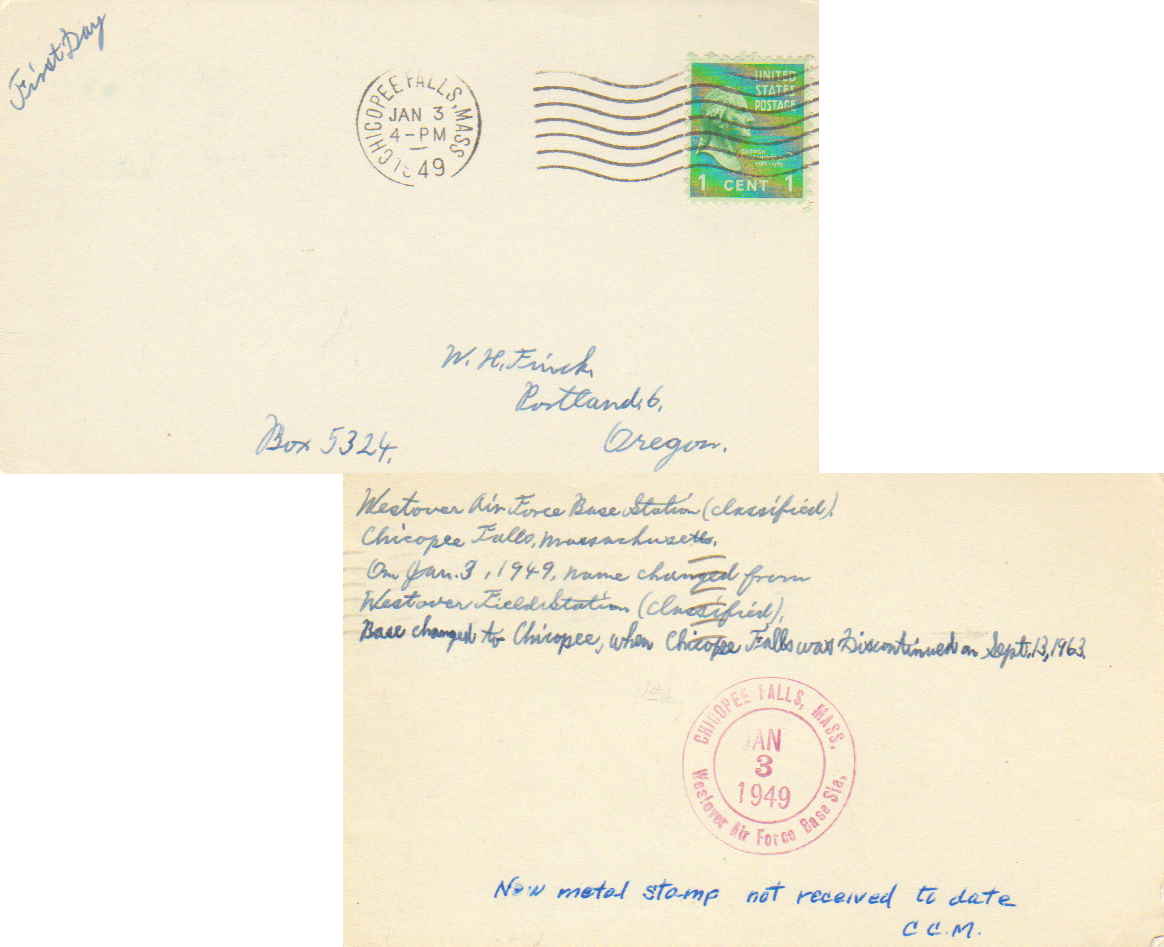 First Day
CHICOPEE FALLS, MASS
JAN 3
4-PM
49
UNITED
STATES
POSTAGE
1 CENT 1
W. H. Finck,
Portland, 6,
Box 5324, Oregon.
Westover Air Force Base Station (classified),
Chicopee Falls, Massachusetts.
On Jan. 3, 1949, name changed from
Westover Field Station (classified),
Base changed to Chicopee, when Chicopee Falls was Discontinued on Sept. 13, 1963.
CHICOPEE FALLS, MASS,
JAN
3
1949
Westover Air Force Base Sta,
New metal stamp not received to date
C C. M.